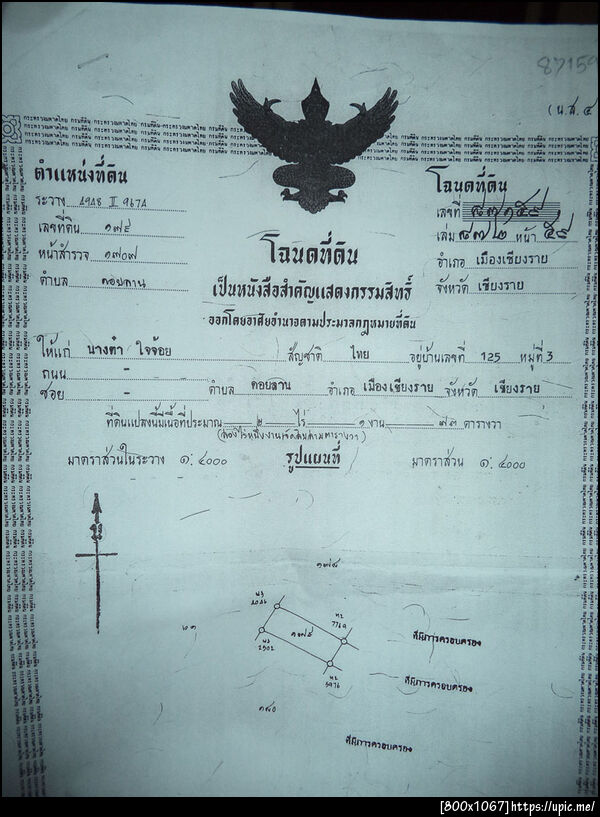 87159
(น.ส.๔
ตำแหน่งที่ดิน
ระวาง 4948 II 9674
เลขที่ดิน ๑๗๙
หน้าสำรวจ ๑๗๐๗
ตำบล ดอยลาน
โฉนดที่ดิน
เลขที่ ๘๗๑๕๙
เล่ม ๘๗๒ หน้า ๕๙
อำเภอ เมืองเชียงราย
จังหวัด เชียงราย
โฉนดที่ดิน
เป็นหนังสือสำคัญแสดงกรรมสิทธิ์
ออกโดยอาศัยอำนาจตามประมวลกฎหมายที่ดิน
ให้แก่ นางคำ ใจจ้อย สัญชาติ ไทย อยู่บ้านเลขที่ 125 หมู่ที่ 3
ถนน - - -
ซอย - ตำบล ดอยลาน อำเภอ เมืองเชียงราย จังหวัด เชียงราย
ที่ดินแปลงนี้มีเนื้อที่ประมาณ ๒ ไร่ ๑ งาน ๗๓ ตารางวา
(สองไร่หนึ่งงานเจ็ดสิบสามตารางวา)
มาตราส่วนในระวาง ๑: ๔๐๐๐ รูปแผนที่ มาตราส่วน ๑: ๔๐๐๐
๑๗๘
น3
น2
7769
๑๗๙
๒๑
น3
2502
น2
5976
ที่มีการครอบครอง
ที่มีการครอบครอง
๑๘๐
ที่มีการครอบครอง
[800x1067]https://upic.me/